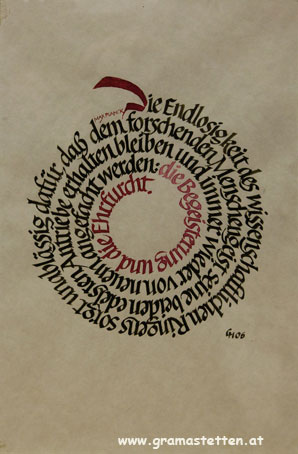 Die Endlosigkeit des wissenschaftlichen Ringens sorgt unablässig dafür, daß dem forschenden Menschengeist seine beiden edelsten Antriebe erhalten bleiben und immer wieder von neuem angefacht werden: die Begeisterung und die Ehrfurcht.
MAX PLANCK
www.gramastetten.at